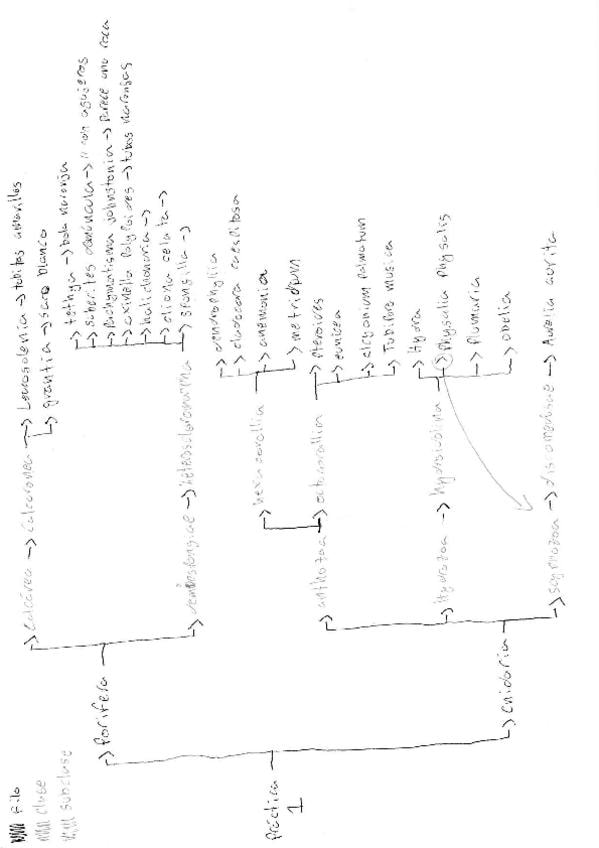 Filo
Clase
subclase
Práctica
1
Porifera
Calcárea → Calcaronea → Leucosolenia → tubitos amarillos
grantia → saco blanco
demospongiae → heteroscleromorpha
tethya → bola naranja
suberites domuncula → con agujeros
Pachymatisma johnstonia → parece una roca
axinella polypoides → tubos naranjas
halichondria →
cliona celata →
spongilla →
Cnidaria
anthozoa
hexacorallia
dendrophyllia
cladocora caespitosa
anemonia
metridium
octocorallia
pteroides
eunicea
alcyonium palmatum
Tubipora musica
Hydrozoa → hydroidolina
Hydra
Physalia Physalis
Plumaria
obelia
scyphozoa → discomedusae → Aurelia aurita